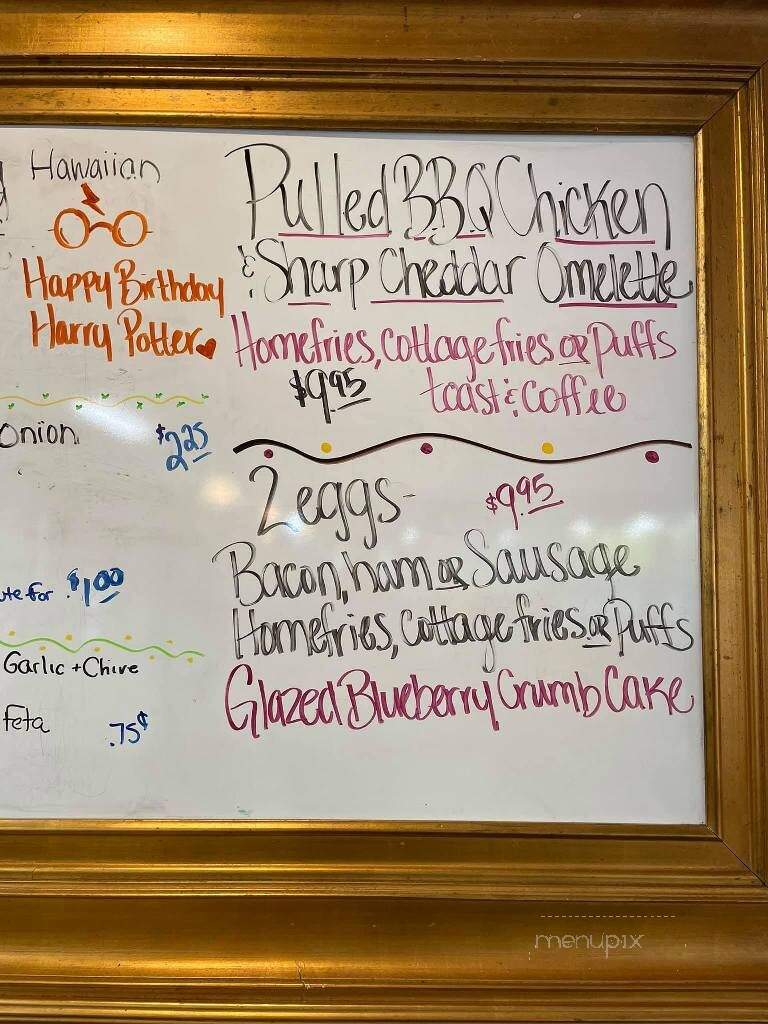 Hawaiian
Happy Birthday
Harry Potter
Onion $2.25
for $1.00
Garlic + Chive
Feta .75¢
Pulled BBQ Chicken
& Sharp Cheddar Omelette
Homefries, Cottage fries or Puffs
$9.95 toast & Coffee
2 eggs- $9.95
Bacon, ham or Sausage
Homefries, Cottage fries or Puffs
Glazed Blueberry Crumb Cake
menupix